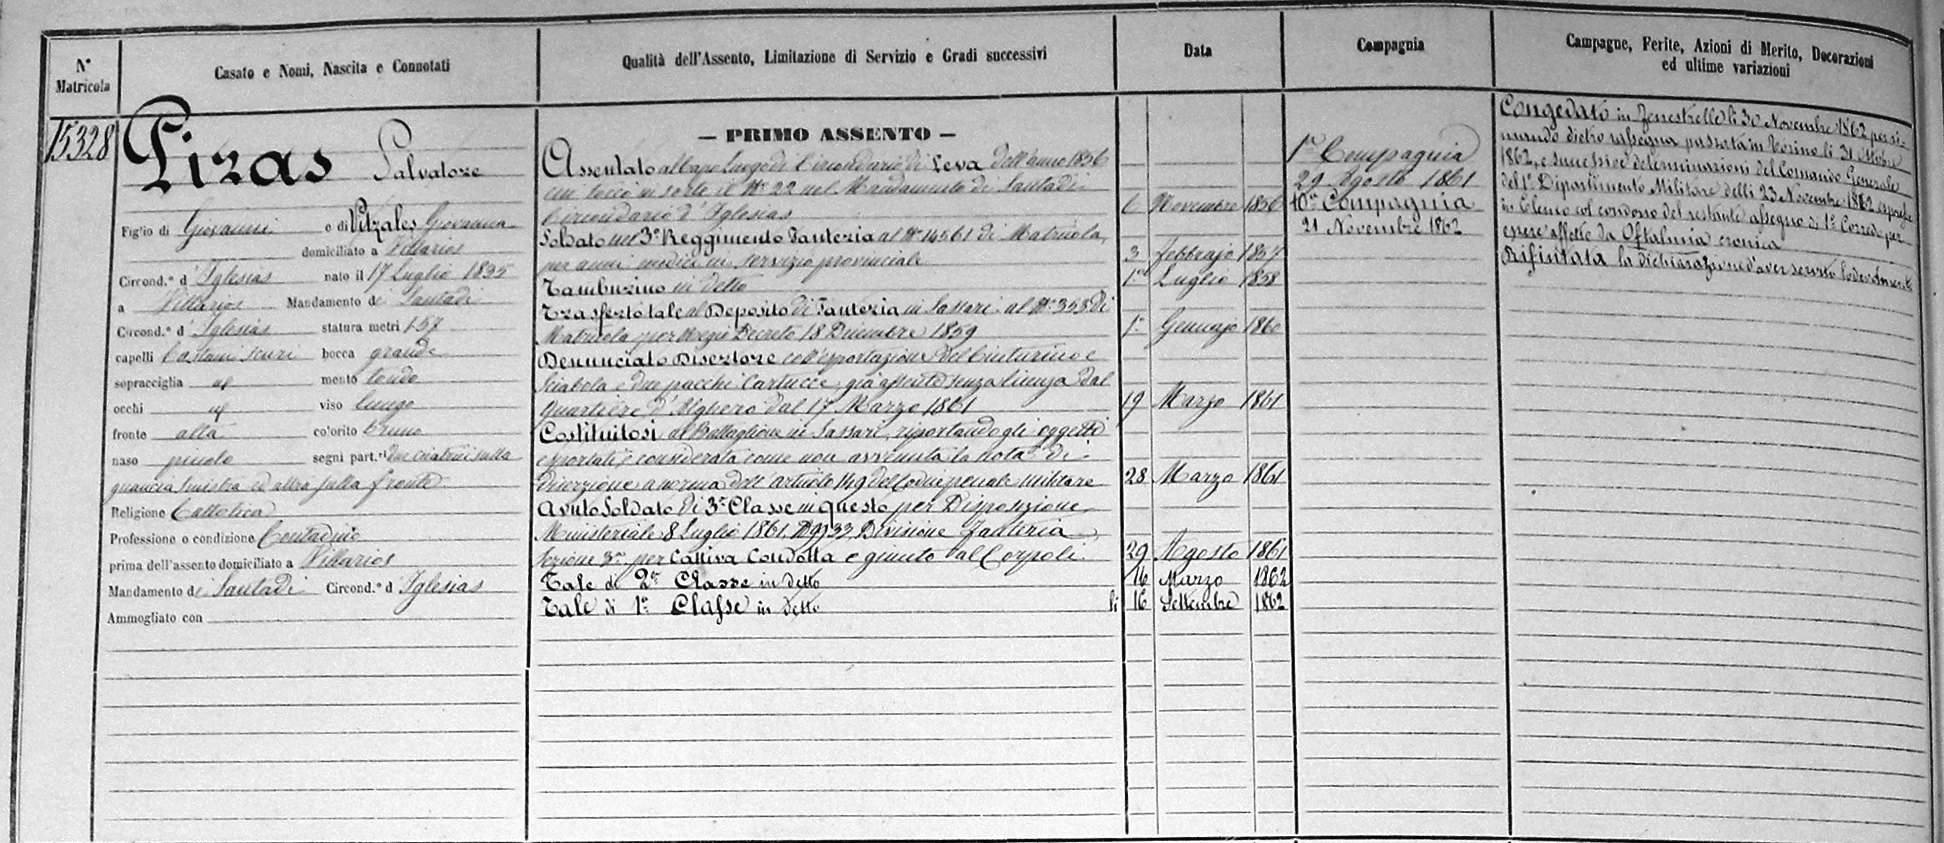 N° Matricola
Casato e Nomi, Nascita e Connotati
Qualità dell'Assento, Limitazione di Servizio e Gradi successivi
Data
Compagnia
Campagne, Ferite, Azioni di Merito, Decorazioni
ed ultime variazioni
15328
Pizas Salvatore
Figlio di Giovanni e di Vitzales Giovanna
domiciliato a Villarios
Circond.° d'Iglesias nato il 17 Luglio 1835
a Villarios Mandamento di Santadi
Circond.° d'Iglesias statura metri 1.57
capelli Castani scuri bocca grande
sopracciglia id mento tondo
occhi id viso lungo
fronte alta colorito bruno
naso piccolo segni part.ri due cicatrici sulla
guancia sinistra ed altra sulla fronte
Religione Cattolica
Professione o condizione Contadino
prima dell'assento domiciliato a Villarios
Mandamento di Santadi Circond.° d'Iglesias
Ammogliato con
— PRIMO ASSENTO —
Assentato al Capo luogo di Circondario di Leva dell'anno 1856
cui toccò in sorte il N° 22 nel Mandamento di Santadi
Circondario d'Iglesias 6 Novembre 1856
Soldato nel 3° Reggimento Fanteria al N° 14561 di Matricola,
per anni undici in servizio provinciale 3 Febbrajo 1857
Tamburino in detto 1° Luglio 1858
Trasferto tale al Deposito di Fanteria in Sassari al N° 358 di
Matricola per Regio Decreto 18 Dicembre 1859 1° Gennajo 1860
Denunciato Disertore coll'esportazione del Cinturino e
Sciabola e due pacchi Cartucce, già assente senza licenza dal
quartiere d'Alghero dal 17 Marzo 1861 19 Marzo 1861
Costituitosi al Battaglione in Sassari, riportando gli oggetti
esportati, considerata come non avvenuta la nota di
diserzione a norma dell'articolo 149 del Codice penale militare 28 Marzo 1861
Avuto Soldato di 3a Classe in questo per Disposizione
Ministeriale 8 Luglio 1861 Divisione Fanteria
Sezione 3a per Cattiva Condotta e giunto al Corpo li 29 Agosto 1861
Tale di 2a Classe in detto 16 Marzo 1862
Tale di 1a Classe in detto li 16 Settembre 1862
1a Compagnia
29 Agosto 1861
10a Compagnia
21 Novembre 1862
Congedato in Fenestrelle li 30 Novembre 1862 per ri-
mando dietro rassegna passata in Torino li 31 Ottobre
1862, e successive determinazioni del Comando Generale
del 1° Dipartimento Militare delli 23 Novembre 1862 espresse
in Elenco col condono del restante assegno di 1° Corredo per
essere affetto da Oftalmia cronica
Rifiutata la dichiarazione d'aver servito lodevolmente